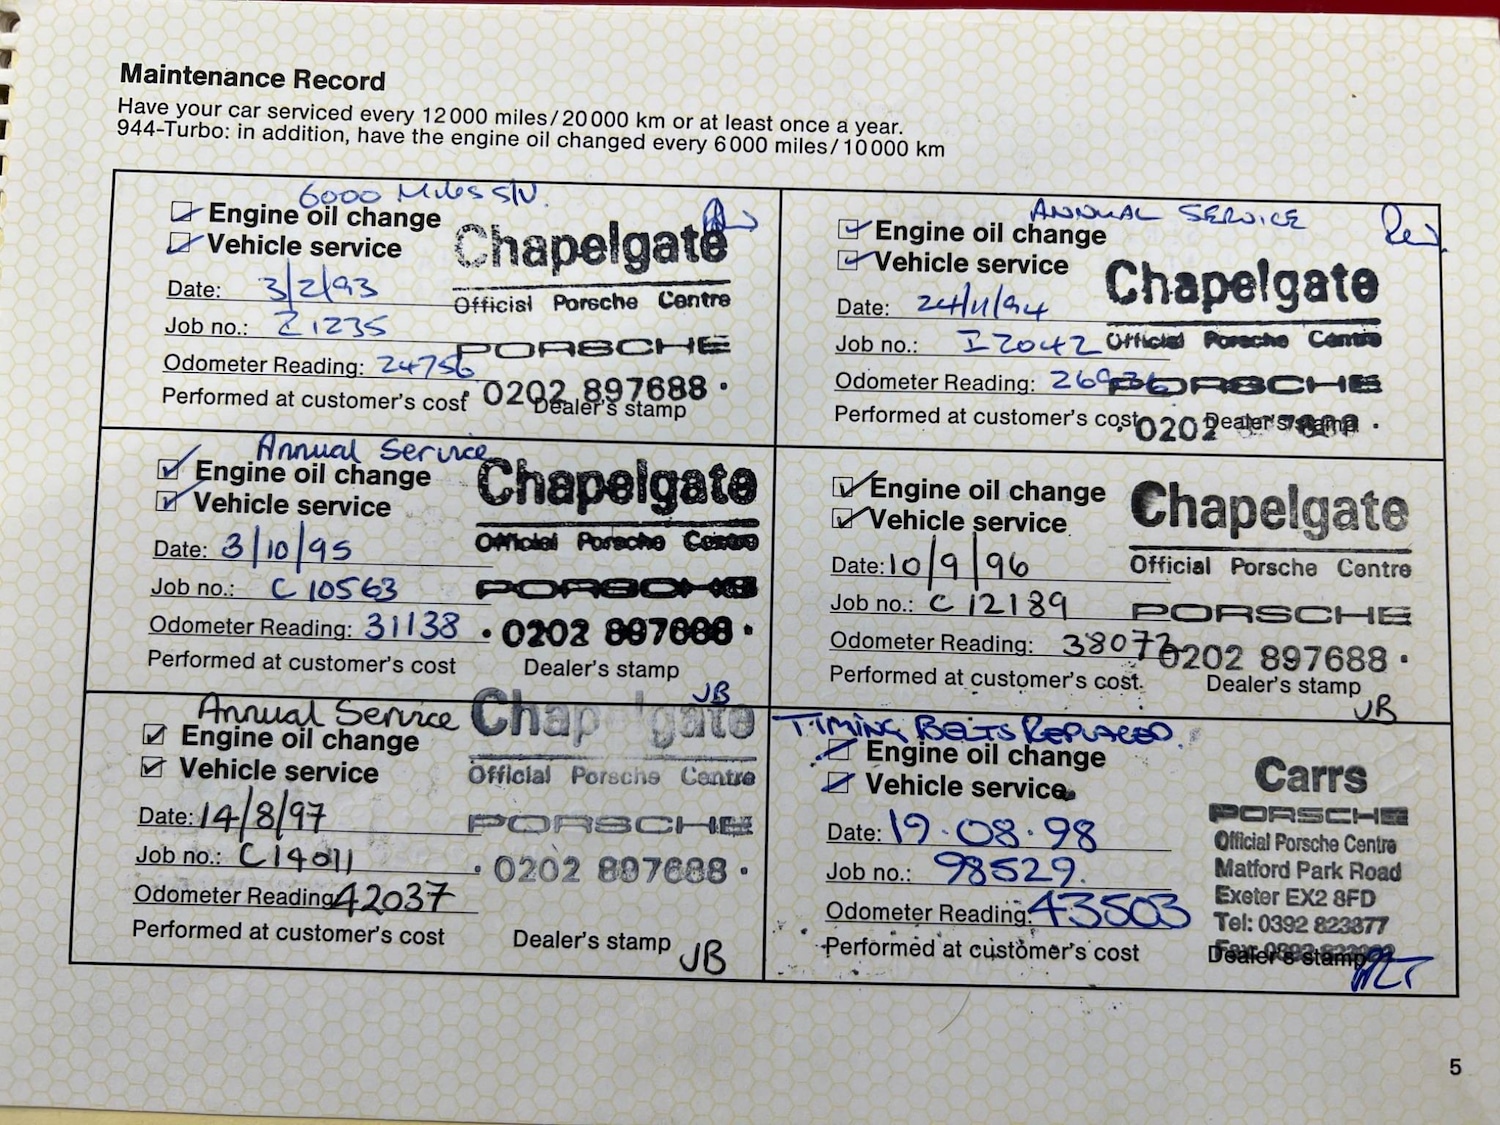 Maintenance Record
Have your car serviced every 12 000 miles/20 000 km or at least once a year.
944-Turbo: in addition, have the engine oil changed every 6 000 miles/10 000 km
6000 Miles S/V.
Engine oil change
Vehicle service
Date: 3/2/93
Job no.: Z1235
Odometer Reading: 24756
Performed at customer's cost
Chapelgate
Official Porsche Centre
PORSCHE
· 0202 897688 ·
Dealer's stamp
ANNUAL SERVICE
Engine oil change
Vehicle service
Date: 24/11/94
Job no.: I2042
Odometer Reading:
Performed at customer's cost
Chapelgate
Official Porsche Centre
PORSCHE
· 0202
Dealer's stamp
Annual Service
Engine oil change
Vehicle service
Date: 3/10/95
Job no.: C 10563
Odometer Reading: 31138
Performed at customer's cost
Chapelgate
Official Porsche Centre
PORSCHE
· 0202 897688 ·
Dealer's stamp
JB
Engine oil change
Vehicle service
Date: 10/9/96
Job no.: C 12189
Odometer Reading: 38072
Performed at customer's cost
Chapelgate
Official Porsche Centre
PORSCHE
0202 897688 ·
Dealer's stamp
JB
Annual Service
Engine oil change
Vehicle service
Date: 14/8/97
Job no.: C14011
Odometer Reading: 42037
Performed at customer's cost
Chapelgate
Official Porsche Centre
PORSCHE
· 0202 897688 ·
Dealer's stamp
JB
TIMING BELTS REPLACED.
Engine oil change
Vehicle service
Date: 19.08.98
Job no.: 98529.
Odometer Reading: 43503
Performed at customer's cost
Carrs
PORSCHE
Official Porsche Centre
Matford Park Road
Exeter EX2 8FD
Tel: 0392 823877
Fax:
Dealer's stamp
5